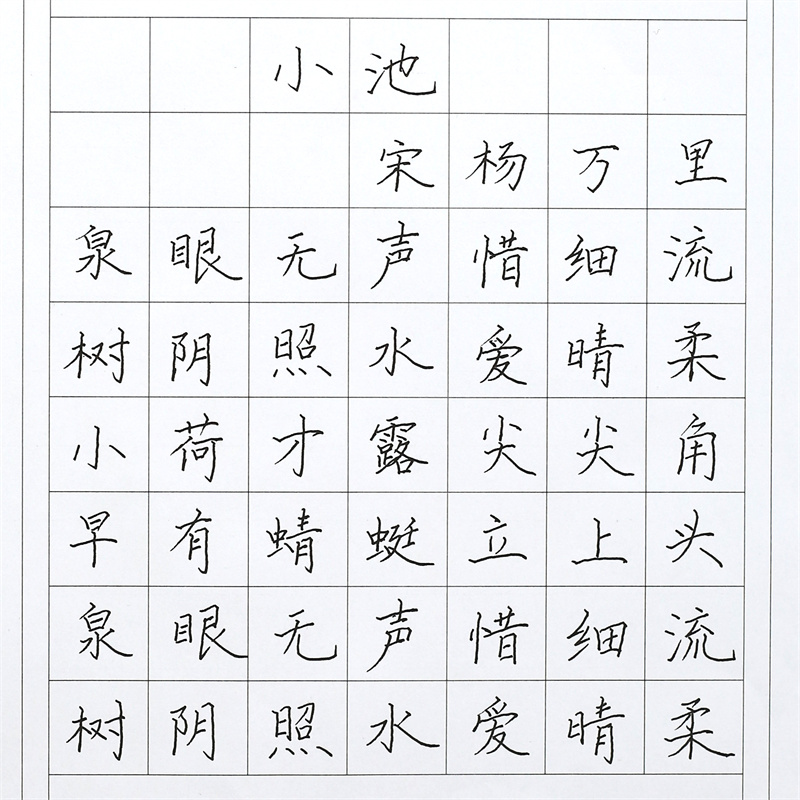 小池
宋杨万里
泉眼无声惜细流
树阴照水爱晴柔
小荷才露尖尖角
早有蜻蜓立上头
泉眼无声惜细流
树阴照水爱晴柔